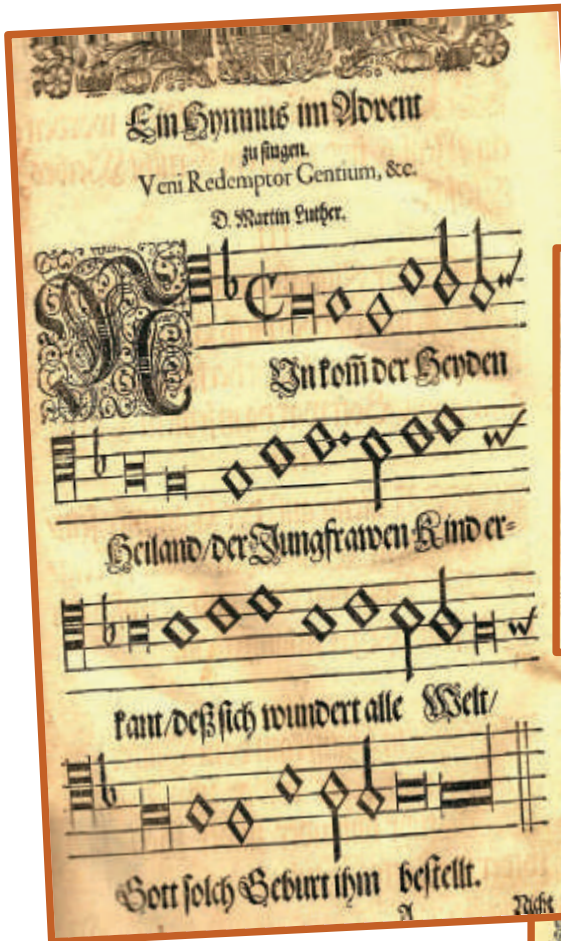 Ein Hymnus im Advent
zu singen.
Veni Redemptor Gentium, &c.
D. Martin Luther.
NUn kom̃ der Heyden
Heiland/der Jungfrawen Kind er-
kant/deß sich wundert alle Welt/
Gott solch Geburt ihm bestellt.
A Nicht